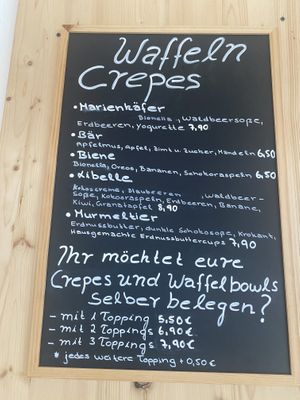 Waffeln
Crepes
• Marienkäfer
Bionella, Waldbeersoße,
Erdbeeren, Yogurette 7,90
• Bär
Apfelmus, Apfel, Zimt u. Zucker, Mandeln 6,50
• Biene
Bionella, Oreos, Bananen, Schokoraspeln 6,50
• Libelle
Kokoscreme, Blaubeeren, Waldbeer-
soße, Kokosraspeln, Erdbeeren, Banane,
Kiwi, Granatapfel 8,90
• Murmeltier
Erdnussbutter, dunkle Schokosoße, Krokant,
Hausgemachte Erdnussbuttercups 7,90
Ihr möchtet eure
Crepes und Waffelbowls
Selber belegen?
- mit 1 Topping 5,50€
- mit 2 Toppings 6,90€
- mit 3 Toppings 7,90€
* jedes weitere Topping +0,50€